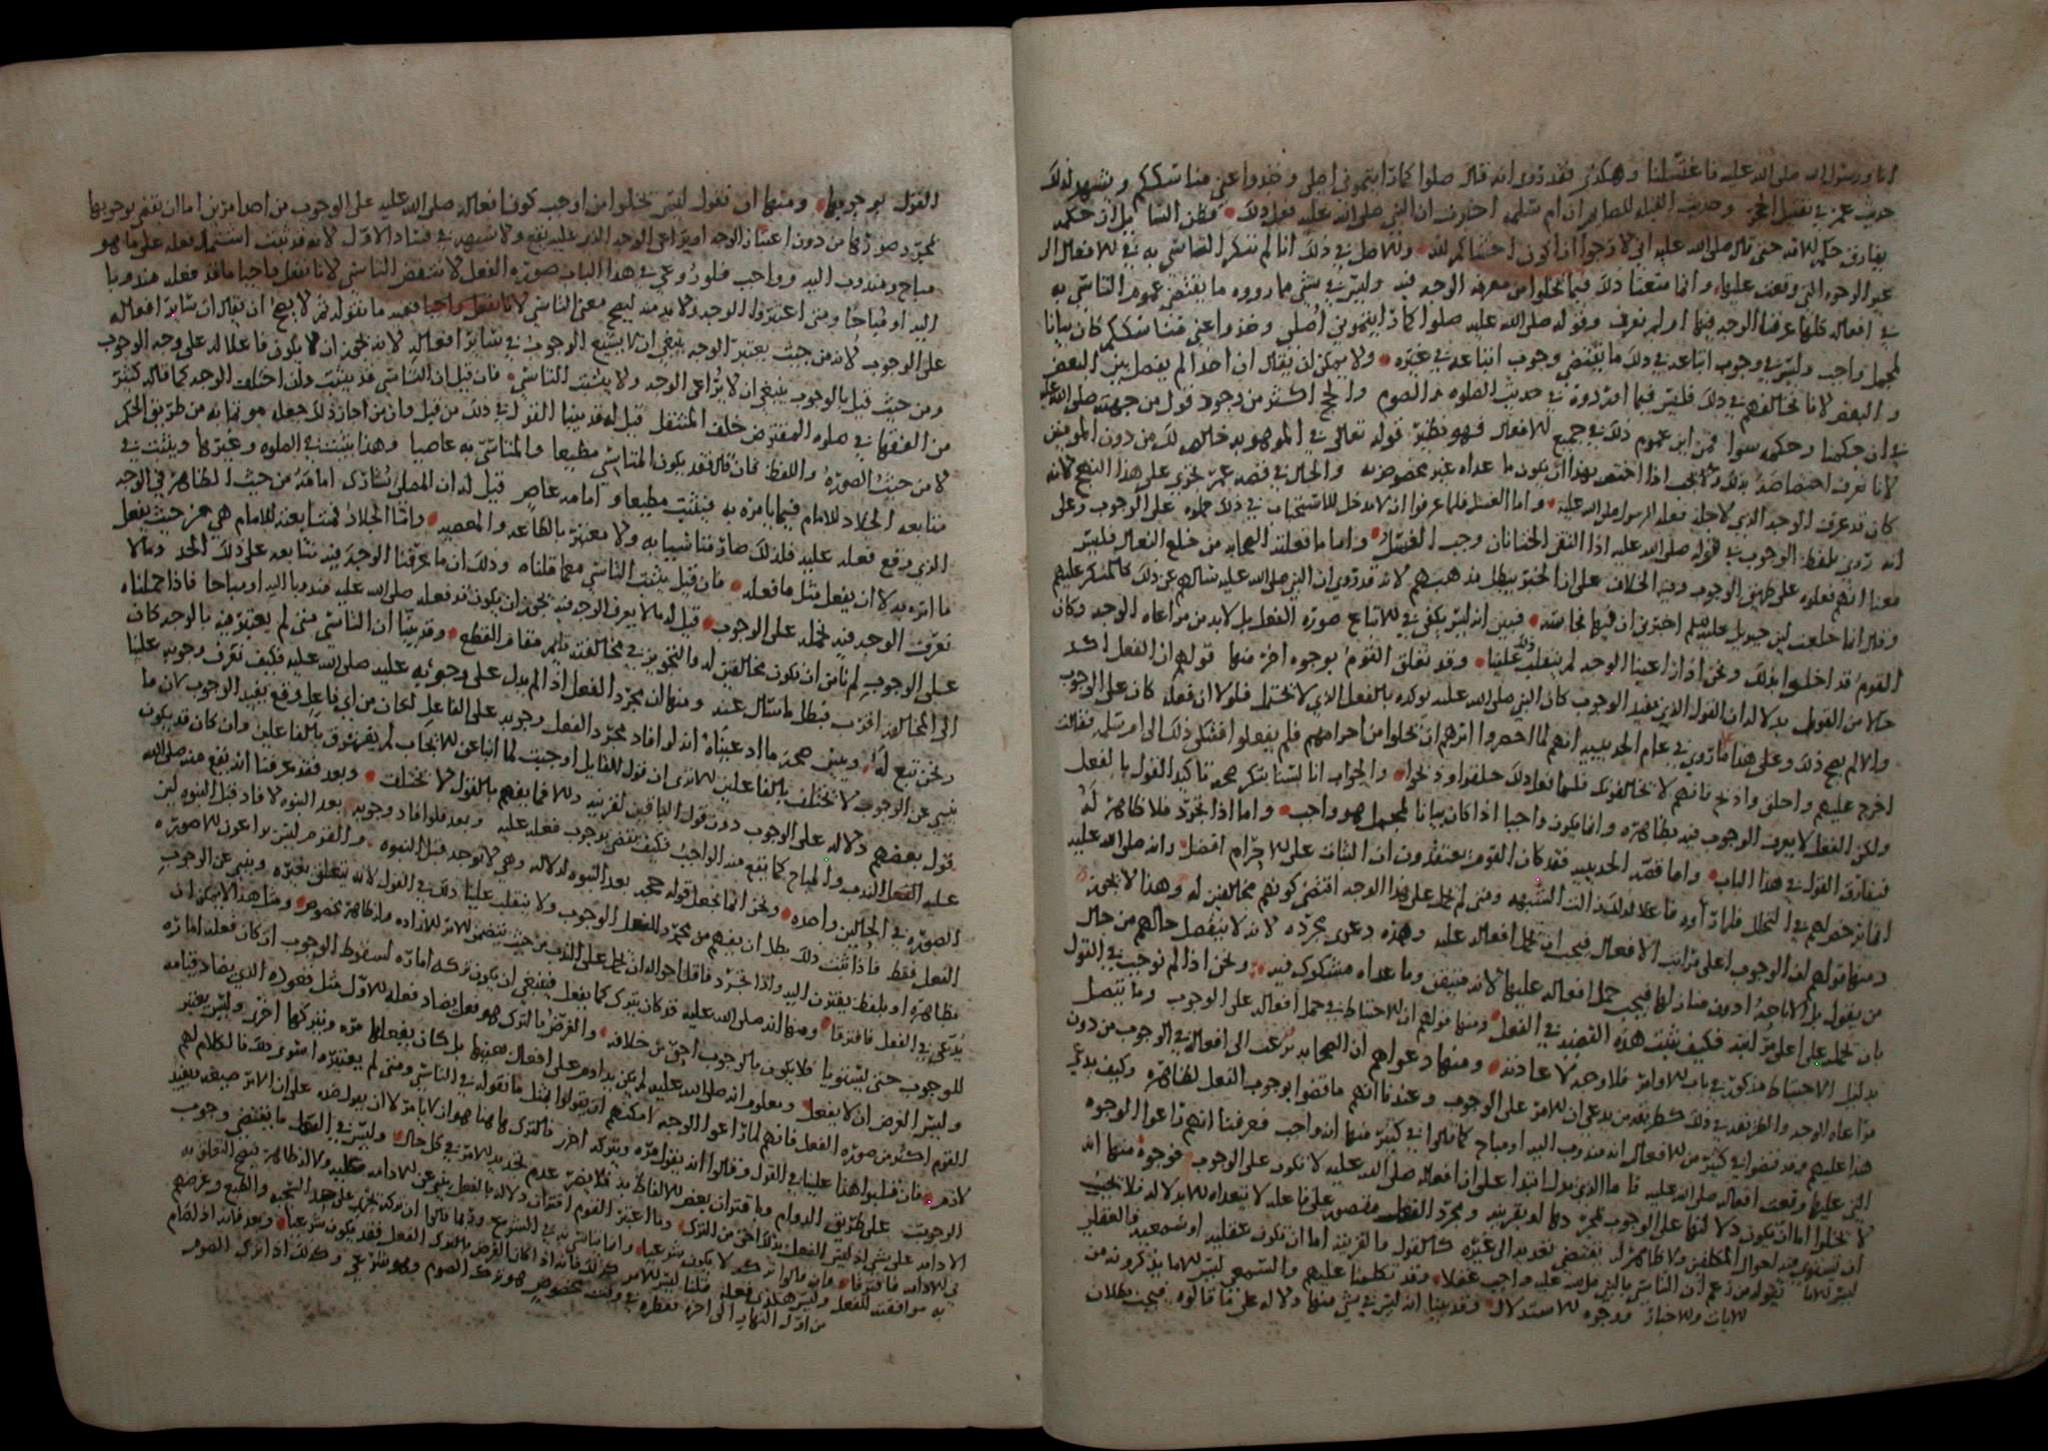 انا ورسول الله صلى الله عليه فاغتسلنا وهكذى فقد روى انه قال صلوا كما رايتموني اصلي وخذوا عني مناسككم ويشهد لذلك
حديث عمر في تقبيل الحجر وحديث القبلة للصايم ان ام سلمه اخبرت ان النبي صلى الله عليه فعل ذلك فظن السايل ان حكمه
يفارق حكم للامه حتى قال صلى الله عليه اني لارجوا ان اكون اخشاكم لله وللاصل في ذلك انا لم ننكر التاسي به في للافعال اذ
عبر الوجوه التي وقعت عليها وانما منعنا ذلك فيما تخلوا من معرفه الوجه فيه وليس في شي مما رووه ما يقتضي عموم التاسي به
في افعاله كلها عرفنا الوجه فيها او لم نعرف وقوله صلى الله عليه صلوا كما رايتموني اصلي وخذوا عني مناسككم كان بيانا
لمجمل واجب وليس في وجوب اتباعه في ذلك ما يقتضي وجوب اتباعه في غيره ولا يمكن ان يقال ان احدا لم يفصل بين البعض
والبعض لانا نخالفهم في ذلك فليس فيما اوردوه في حديث الصلوه والصوم والحج اكثر من وجود قول من جهته صلى الله عليه
في ان حكمنا وحكمه سوا فمن اين عموم ذلك في جميع للافعال فهو نظير قوله تعالى في الموهوبه خالصه لك من دون المومنين
لانا نعرف اختصاصه بذلك ولا يجب اذا اختص بهذا ان يكون ما عداه غير مخصوص به والحال في قصه عمر تجري على هذا النهج لانه
كان قد عرف الوجه الذي لاجله فعله الرسول صلى الله عليه واما الغسل فلما عرفوا ان لا مدخل للاستحباب في ذلك حملوه على الوجوب وعلى
انه روى بلفظ الوجوب في قوله صلى الله عليه اذا التقى الختانان وجب الغسل واما ما فعلته الصحابه من خلع النعال فليس
معنا انهم فعلوه على طريق الوجوب وفيه الخلاف على ان الخبر يبطل مذهبهم لانه قد روي ان النبي صلى الله عليه سالهم عن ذلك كالمنكر عليهم
وقال انما خلعت لان جبريل عليه السلم اخبرني ان فيها نجاسه فبين انه ليس يكفي في للاتباع صوره الفعل بل لا بد من مراعاه الوجه وكان
القوم قد اخلوا بذلك ونحن اذا راعينا الوجه لم ينقلب ذلك علينا وقد تعلق القوم بوجوه اخر منها قولهم ان الفعل اكد
حالا من القول بدلاله ان القول الذي يفيد الوجوب كان النبي صلى الله عليه يوكده بالفعل الذي لا يحتمل فلولا ان فعله كان على الوجوب
والا لم يصح ذلك وعلى هذا ما روي في عام الحديبيه انهم لما احصروا امرهم ان يحلوا من احرامهم فلم يفعلوا فشكى ذلك الى ام سلمه فقالت
اخرج عليهم واحلق واذبح فانهم لا يخالفونك فلما فعل ذلك حلقوا وذبحوا والجواب انا لسنا ننكر صحه تاكيد القول بالفعل
ولكن الفعل لا يعرف الوجوب فيه بظاهره وانما يكون واجبا اذا كان بيانا لمجمل هو واجب واما اذا تجرد فلا ظاهر له
فيفارق القول في هذا الباب واما قصه الحديبيه فقد كان القوم يعتقدون ان الثبات على للاحرام افضل وانه صلى الله عليه
انما رخص لهم في التحلل فلما راوه فاعلا لذلك زالت الشبهه ومتى لم تحمل على هذا الوجه اقتضى كونهم مخالفين له وهذا لا يجوز
ومنها قولهم ان الوجوب اعلى مراتب الافعال فيجب ان تحمل افعاله عليه وهذه دعوى مجرده لانه لا ينفصل حالهم من حال
من يقول بل الاباحه ادون منازلها فيجب حمل افعاله عليها لانه متيقن وما عداه مشكوك فيه ونحن اذا لم نوجب في القول
بان تحمله على اعلى مراتبه فكيف يثبت هذه القضيه في الفعل ومنها قولهم ان للاحتياط في حمل افعاله على الوجوب وما يتصل
بدليل الاحتياط مذكور في باب للاوامر فلا وجه لاعادته ومنها دعواهم ان الصحابه فزعت الى افعاله في الوجوب من دون
مراعاه الوجه والطريقه في ذلك كطريقه من يدعي ان للامر على الوجوب وعندنا انهم ما قضوا بوجوب الفعل لظاهره وكيف يدعي
هذا عليهم وقد قضوا في كثير من للافعال انه مندوب اليه او مباح كما قالوا في كثير منها انه واجب فعرفنا انهم راعوا الوجوه
التي عليها وقعت افعاله صلى الله عليه فاما الذي يدل ابتدا على ان افعاله صلى الله عليه لا تكون على الوجوب فوجوه منها انه
لا تخلوا اما ان تكون دلالتها على الوجوب بمجردها او بقرينه ومجرد الفعل مقصور على فاعله لا يتعداه للا بدلاله فلا يجب
ان يستوي فيه احوال المكلفين ولا ظاهر له يقتضي تعديه الى غيره كالقول والقرينه اما ان تكون عقليه او سمعيه فالعقلي
ليس للا ما يقوله من زعم ان التاسي بالنبي صلى الله عليه واجب عقلا وقد تكلمنا عليهم والسمعي ليس للا ما يذكرونه من
للايات وللاخبار ووجوه للاستدلال وقد بينا انه ليس في شي منها دلاله على ما قالوه فيجب بطلان
القول بوجوبها ومنها ان نقول ليس تخلوا من اوجب كون افعاله صلى الله عليه على الوجوب من احد امرين اما ان يقضي بوجوبها
بمجرد صورتها من دون اعتبار الوجه او يراعى الوجه الذي عليه يقع ولا شبهه في فساد الاول لانه قد ثبت اشتمال فعله على ما هو
مباح ومندوب اليه وواجب فلو روعي في هذا الباب صوره الفعل لانتقض التاسي لانا نفعل واجبا ما قد فعله مندوبا
اليه او مباحا ومتى اعتبروا الوجه ولا بد منه ليصح معنى التاسي لانا نفعل واجبا فهو ما نقوله ثم لا يصح ان يقال ان ساير افعاله
على الوجوب لانه من حيث يعتبر الوجه ينبغي ان لا يشيع الوجوب في ساير افعاله لانه يجوز ان لا يكون فاعلا له على وجه الوجوب
ومن حيث قيل بالوجوب ينبغي ان لا يراعى الوجه ولا يثبت التاسي فان قيل ان التاسي قد يثبت وان اختلف الوجه كما قاله كثير
من الفقها في صلوه المفترض خلف المتنفل قيل له قد بينا القول في ذلك من قبل وان من اجاز ذلك جعله موتما به من طريق الحكم
لا من حيث الصوره واللفظ فان قال فقد يكون المتاسي مطيعا والمتاسى به عاصيا وهذا يثبت في الصلوه وغيرها ويثبت في
متابعه الجلاد للامام فيما يامره به فيثبت مطيعا وامامه عاص قيل له ان المصلي شارك امامه من حيث الظاهر في الوجه
الذي وقع فعله عليه فلذلك صار متاسيا به ولا معتبر بالطاعه والمعصيه واما الجلاد فمتابعته للامام هي من حيث يفعل
ما امره به لا ان يفعل مثل ما فعله فان قيل يثبت التاسي معما قلناه وذلك ان ما عرفنا الوجه فيه نتابعه على ذلك الحد وما لا
نعرف الوجه فيه نحمله على الوجوب قيل له ما لا يعرف الوجه فيه يجوز ان يكون قد فعله صلى الله عليه مندوبا اليه او مباحا فاذا حملناه
على الوجوب لم نامن ان نكون مخالفين له والتجويز في مخالفته قايم مقام القطع وقد بينا ان التاسي متى لم يعتبر فيه بالوجه كان
الى المخالفه اقرب فبطل ما سال عنه ومنها ان مجرد الفعل اذا لم يدل على وجوبه عليه صلى الله عليه فكيف نعرف وجوبه علينا
ونحن تبع له ويبين صحه ما ادعيناه انه لو افاد مجرد الفعل وجوبه على الفاعل لكان من اي فاعل وقع يفيد الوجوب لان ما
ينبي عن الوجوب لا يختلف بالفاعلين للا ترى ان قول القايل اوجبت لما انبا عن للايجاب لم يفترق بالفاعلين وان كان قد يكون
قول بعضهم دلاله على الوجوب دون قول الباقين لقرينه وللا فما يفهم بالقول لا يختلف وبعد فقد عرفنا انه يقع منه صلى الله
عليه الفعل الندب والمباح كما يقع منه الواجب فكيف يقتضي بوجوب فعله عليه وبعد فلو افاد وجوبه بعد النبوه لافاد قبل النبوه لان
الصوره في الحالين واحده ونحن انما نجعل قوله حجه بعد النبوه لدلاله وهي لا توجد قبل النبوه والقوم ليس يراعون للا صوره
الفعل فقط فاذا ثبت ذلك بطل ان يفهم من مجرد الفعل الوجوب ولا ينقلب علينا ذلك في القول لانه يتعلق بغيره وينبي عن الوجوب
بظاهره او بلفظ يقترن اليه واذا تجرد فاقل احواله ان يحمل على الندب من حيث يتضمن للامر للاراده وله ظاهر مخصوص ومثل هذا لا يمكن ان
يدعى في الفعل فافترقا ومنها انه صلى الله عليه قد كان يترك كما يفعل فينبغي ان يكون تركه اماره لسقوط الوجوب ان كان فعله اماره
للوجوب حتى يستويا فلا يكون بالوجوب احق من خلافه والغرض بالترك هو فعل يضاد فعله للاول مثل قعوده الذي يضاد قيامه
وليس الغرض ان لا يفعل ومعلوم انه صلى الله عليه لم يكن يداوم على افعال بعينها بل كان يفعلها مره ويتركها اخرى وليس يعتبر
القوم اكثر من صوره الفعل فانهم لو راعوا الوجه امكنهم ان يقولوا بمثل ما نقوله في التاسي ومتى لم يعتبروه استوى ذلك فالكلام لهم
لازم فان قلبوا هذا علينا في القول وقالوا انه يقول مره ويتركه اخرى فالترك هاهنا هو ان لا يامر لا ان يقول ضده على ان الامر صيغه يفيد
الوجوب على طريق الدوام وباقتران بعض للالفاظ به فلا يضر عدم تجديد للامر في كل حال وليس في الفعل ما يقتضي وجوب
الادامه على شي اذ ليس الفعل بذلك احق من الترك وبما اعتبر القوم اقتران دلاله بالفعل ينبي عن للادامه عليه ولا له ظاهر فيصح التعلق به
في للادامه فافترقا وان قالوا تركه لا يكون شرعيا وانما نتاسى به في الشرع وربما قالوا ان تركه يجري على حد السجيه والطبع وغرضهم
به موافقته للفعل وليس هكذى فعله قلنا ليس للامر كذلك فانه اذا كان الغرض بالترك الفعل فقد يكون شرعيا وبعد فانه اذا صام
من اول النهار الى اخره ففطره في وقت مخصوص هو ترك الصوم وهو شرعي وكذلك اذا ترك الصوم